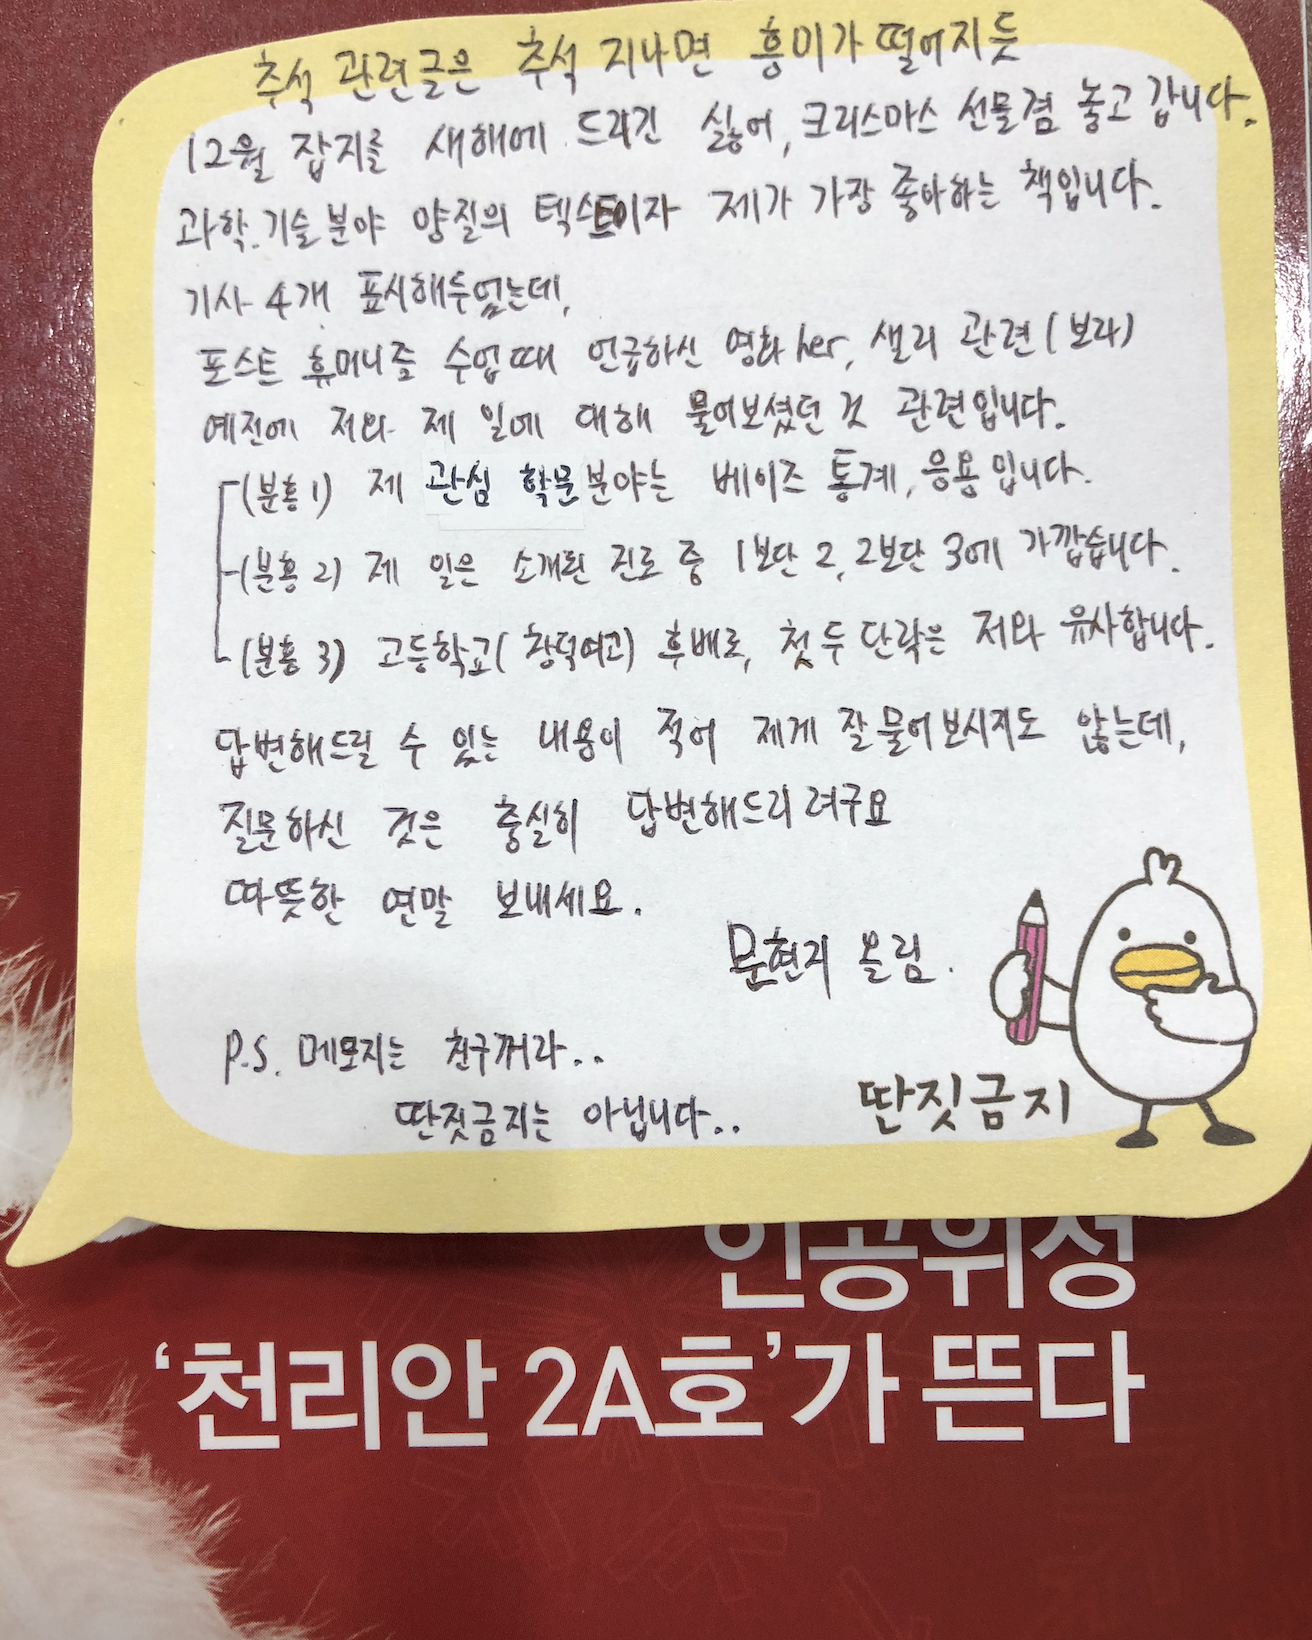 추석 관련글은 추석 지나면 흥미가 떨어지듯
12월 잡지를 새해에 드리긴 싫어, 크리스마스 선물겸 놓고 갑니다.
과학.기술 분야 양질의 텍스트이자 제가 가장 좋아하는 책입니다.
기사 4개 표시해두었는데,
포스트 휴머니즘 수업 때 언급하신 영화 her, 샐리 관련 (보라)
예전에 저와 제 일에 대해 물어보셨던 것 관련입니다.
(분홍 1) 제 관심 학문분야는 베이즈 통계, 응용입니다.
(분홍 2) 제 일은 소개된 진로 중 1보단 2, 2보단 3에 가깝습니다.
(분홍 3) 고등학교(창덕여고) 후배로, 첫 두 단락은 저와 유사합니다.
답변해드릴 수 있는 내용이 적어 제게 잘 물어보시지도 않는데,
질문하신 것은 충실히 답변해드리려구요
따뜻한 연말 보내세요.
문현지 올림.
P.S. 메모지는 친구꺼라..
딴짓금지는 아닙니다..
딴짓금지
인공위성
‘천리안 2A호’가 뜬다